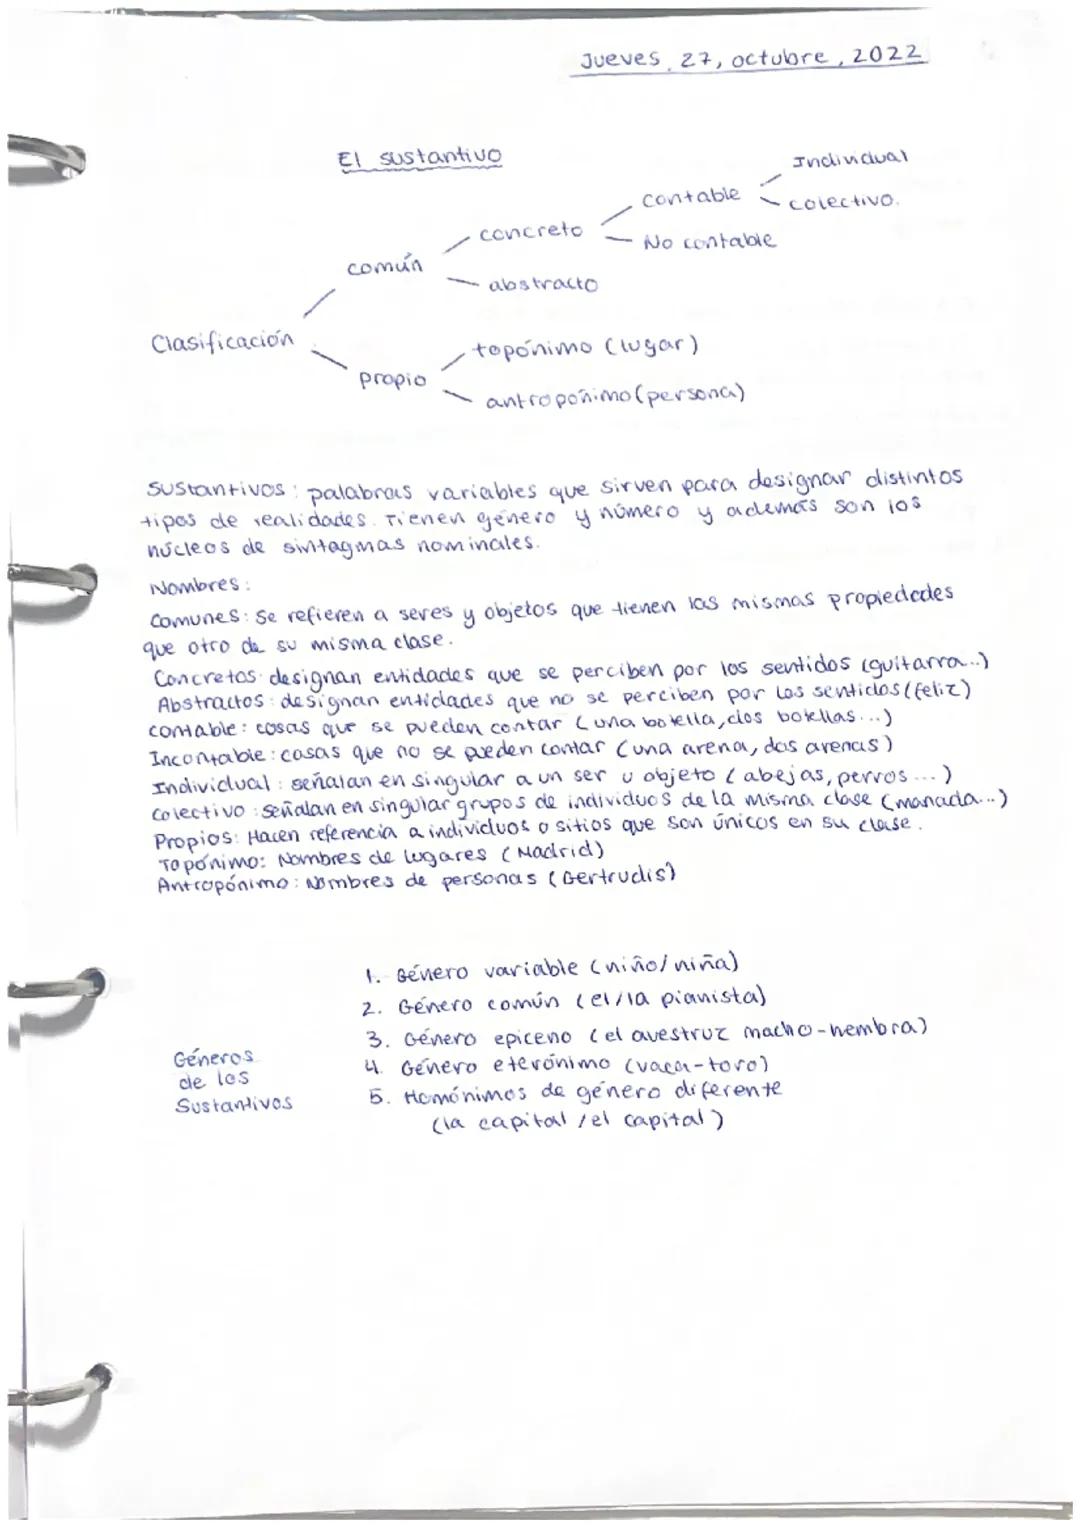 Jueves, 27, octubre, 2022
El sustantivo
Individual
contable
colectivo.
concreto
No contable
común
abstracto
Clasificación
topónimo (lugar)
propio
antropónimo (persona)
Sustantivos: palabras variables que sirven para designar distintos
tipos de realidades. Tienen género y número y además son los
núcleos de sintagmas nominales.
Nombres:
Comunes: Se refieren a seres y objetos que tienen las mismas propiedades
que otro de su misma clase.
Concretos: designan entidades que se perciben por los sentidos (guitarra...)
Abstractos: designan entidades que no se perciben por los sentidos (feliz)
contable: cosas que se pueden contar (una botella, dos botellas...)
Incontable: cosas que no se pueden contar (una arena, dos arenas)
Individual: señalan en singular a un ser u objeto (abejas, perros...)
colectivo: señalan en singular grupos de individuos de la misma clase (manada...)
Propios: Hacen referencia a individuos o sitios que son únicos en su clase.
Topónimo: Nombres de lugares (Madrid)
Antropónimo: Nombres de personas (Gertrudis)
1. Género variable (niño/niña)
2. Género común (el/la pianista)
3. Género epiceno (el avestruz macho-hembra)
Géneros
de los
Sustantivos
4. Género eterónimo (vaca-toro)
5. Homónimos de género diferente
(la capital/el capital)